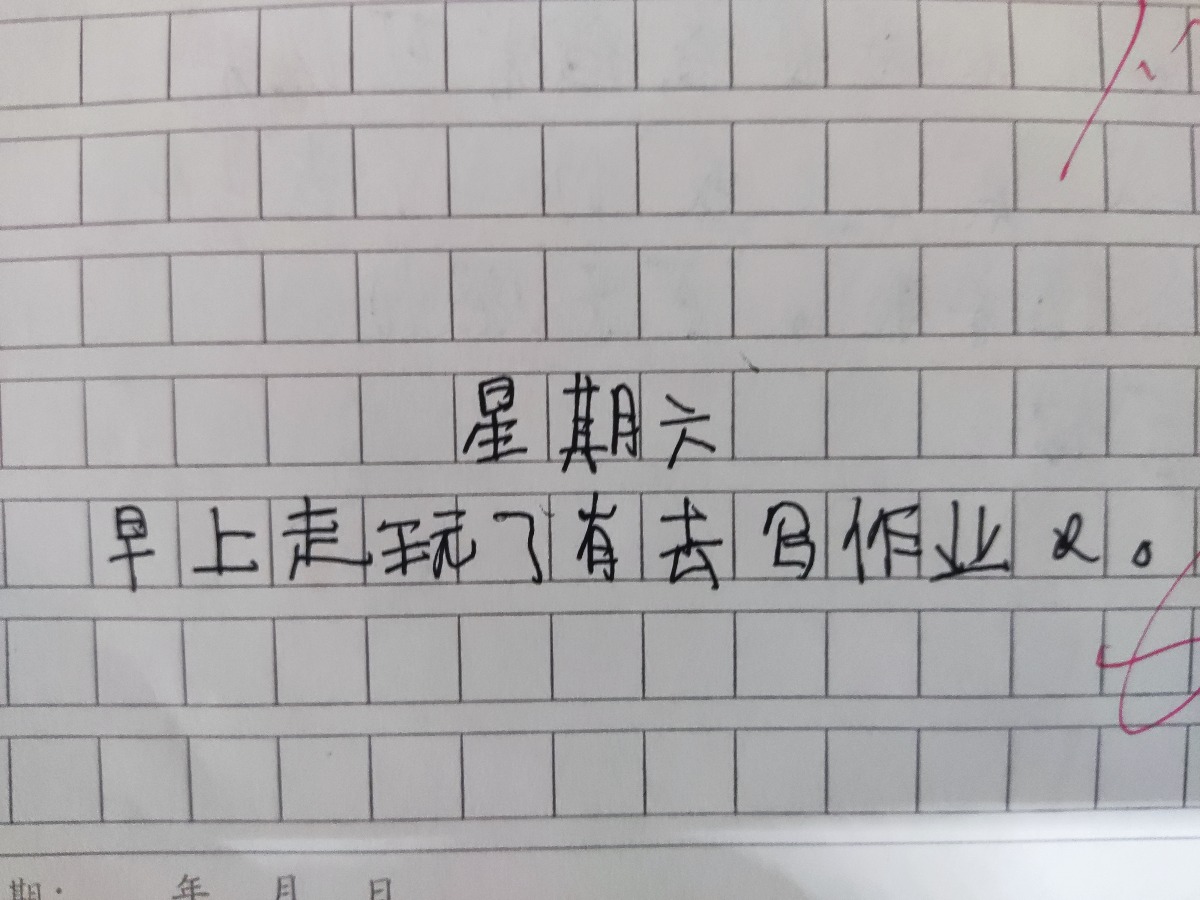 星期六
早上走玩了有去写作业又。
期: 年 月 日